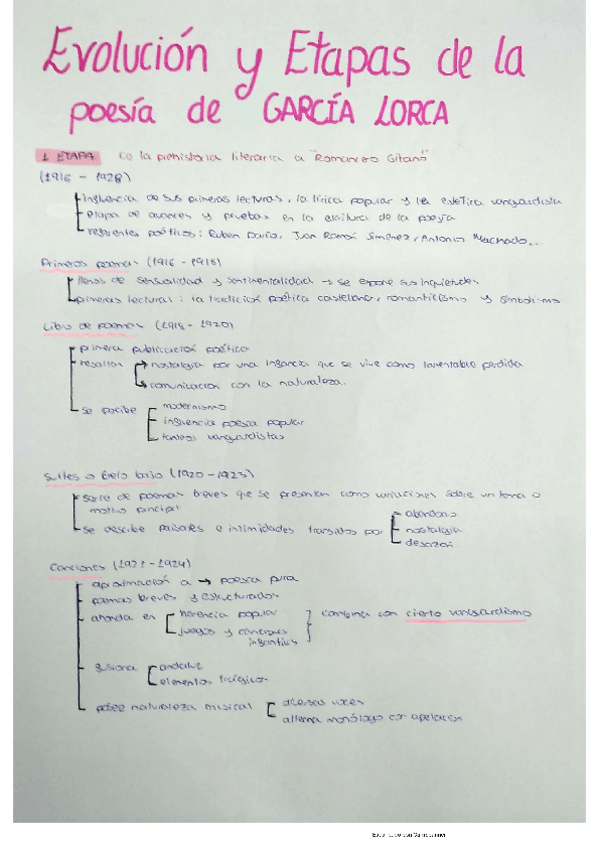 Evolución y Etapas de la
poesía de GARCÍA LORCA
1. ETAPA De la prehistoria literaria a "Romancero Gitano"
(1916 - 1928)
influencia de sus primeras lecturas, la lírica popular y la estética vanguardista
etapa de avances y pruebas en la escritura de la poesía
referentes poéticos: Rubén Darío, Juan Ramón Jiménez, Antonio Machado...
Primeros poemas (1916 - 1918)
llenos de sensualidad y sentimentalidad → se expone sus inquietudes
primeras lecturas: la tradición poética castellana, romanticismo y simbolismo
Libro de poemas (1918 - 1920)
primera publicación poética
resaltan → nostalgia por una infancia que se vive como lamentable pérdida
comunicación con la naturaleza.
se percibe
modernismo
influencia poesía popular
tanteos vanguardistas
Suites o (1920 - 1923)
serie de poemas breves que se presentan como variaciones sobre un tema o
motivo principal
se describe paisajes e intimidades transidos por
abandono
nostalgia
desazón
Canciones (1921 - 1924)
aproximación a → poesía pura
poemas breves y estructurados
ahonda en
herencia popular
juegos y canciones
infantiles
combina con cierto vanguardismo
fusiona
andaluz
elementos trágicos
posee naturaleza musical
diversas voces
alterna monólogo con apelación